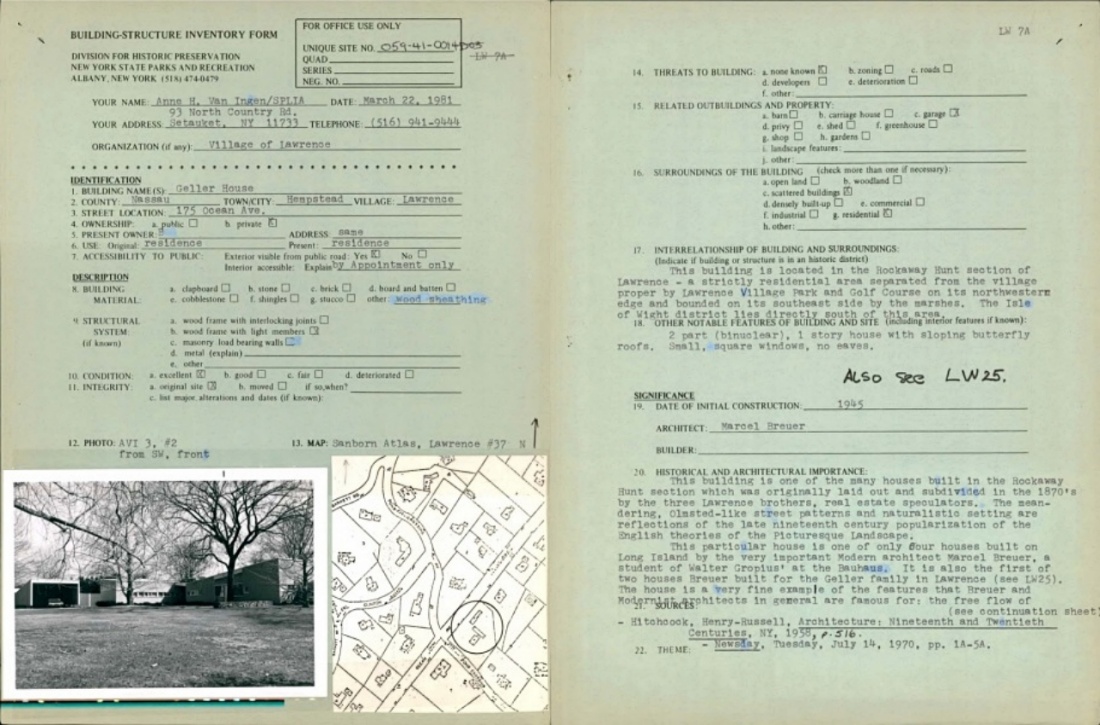 BUILDING-STRUCTURE INVENTORY FORM
DIVISION FOR HISTORIC PRESERVATION
NEW YORK STATE PARKS AND RECREATION
ALBANY, NEW YORK (518) 474-0479
FOR OFFICE USE ONLY
UNIQUE SITE NO. 059-41-0014
QUAD
SERIES
NEG. NO.
LW 7A
YOUR NAME: Anne H. Van Ingen/SPLIA DATE: March 22, 1981
93 North Country Rd.
YOUR ADDRESS: Setauket, NY 11733 TELEPHONE: (516) 941-9444
ORGANIZATION (if any): Village of Lawrence
IDENTIFICATION
1. BUILDING NAME(S): Geller House
2. COUNTY: Nassau TOWN/CITY: Hempstead VILLAGE: Lawrence
3. STREET LOCATION: 175 Ocean Ave.
4. OWNERSHIP: a. public b. private
5. PRESENT OWNER: ADDRESS: same
6. USE: Original: residence Present: residence
7. ACCESSIBILITY TO PUBLIC: Exterior visible from public road: Yes No
Interior accessible: Explain by Appointment only
DESCRIPTION
8. BUILDING MATERIAL: a. clapboard b. stone c. brick d. board and batten
e. cobblestone f. shingles g. stucco other: wood sheathing
9. STRUCTURAL SYSTEM: (if known) a. wood frame with interlocking joints
b. wood frame with light members
c. masonry load bearing walls
d. metal (explain)
e. other
10. CONDITION: a. excellent b. good c. fair d. deteriorated
11. INTEGRITY: a. original site b. moved if so, when?
c. list major alterations and dates (if known):
12. PHOTO: AVI 3, #2
from SW, front
13. MAP: Sanborn Atlas, Lawrence #37 N
LW 7A
14. THREATS TO BUILDING: a. none known b. zoning c. roads
d. developers e. deterioration
f. other:
15. RELATED OUTBUILDINGS AND PROPERTY:
a. barn b. carriage house c. garage
d. privy e. shed f. greenhouse
g. shop h. gardens
i. landscape features:
j. other:
16. SURROUNDINGS OF THE BUILDING (check more than one if necessary):
a. open land b. woodland
c. scattered buildings
d. densely built-up e. commercial
f. industrial g. residential
h. other:
17. INTERRELATIONSHIP OF BUILDING AND SURROUNDINGS:
(Indicate if building or structure is in an historic district)
This building is located in the Rockaway Hunt section of
Lawrence - a strictly residential area separated from the village
proper by Lawrence Village Park and Golf Course on its northwestern
edge and bounded on its southeast side by the marshes. The Isle
of Wight district lies directly south of this area.
18. OTHER NOTABLE FEATURES OF BUILDING AND SITE (including interior features if known):
2 part (binuclear), 1 story house with sloping butterfly
roofs. Small, square windows, no eaves.
ALSO see LW25.
SIGNIFICANCE
19. DATE OF INITIAL CONSTRUCTION: 1945
ARCHITECT: Marcel Breuer
BUILDER:
20. HISTORICAL AND ARCHITECTURAL IMPORTANCE:
This building is one of the many houses built in the Rockaway
Hunt section which was originally laid out and subdivided in the 1870's
by the three Lawrence brothers, real estate speculators. The mean-
dering, Olmsted-like street patterns and naturalistic setting are
reflections of the late nineteenth century popularization of the
English theories of the Picturesque Landscape.
This particular house is one of only four houses built on
Long Island by the very important Modern architect Marcel Breuer, a
student of Walter Gropius' at the Bauhaus. It is also the first of
two houses Breuer built for the Geller family in Lawrence (see LW25).
The house is a very fine example of the features that Breuer and
Modernist architects in general are famous for: the free flow of
21. SOURCES: (see continuation sheet)
- Hitchcock, Henry-Russell, Architecture: Nineteenth and Twentieth
Centuries, NY, 1958, p.516.
22. THEME: - Newsday, Tuesday, July 14, 1970, pp. 1A-5A.